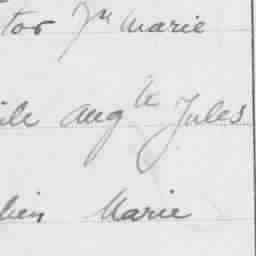 tor Jn Marie
ile Augte Jules
bien Marie